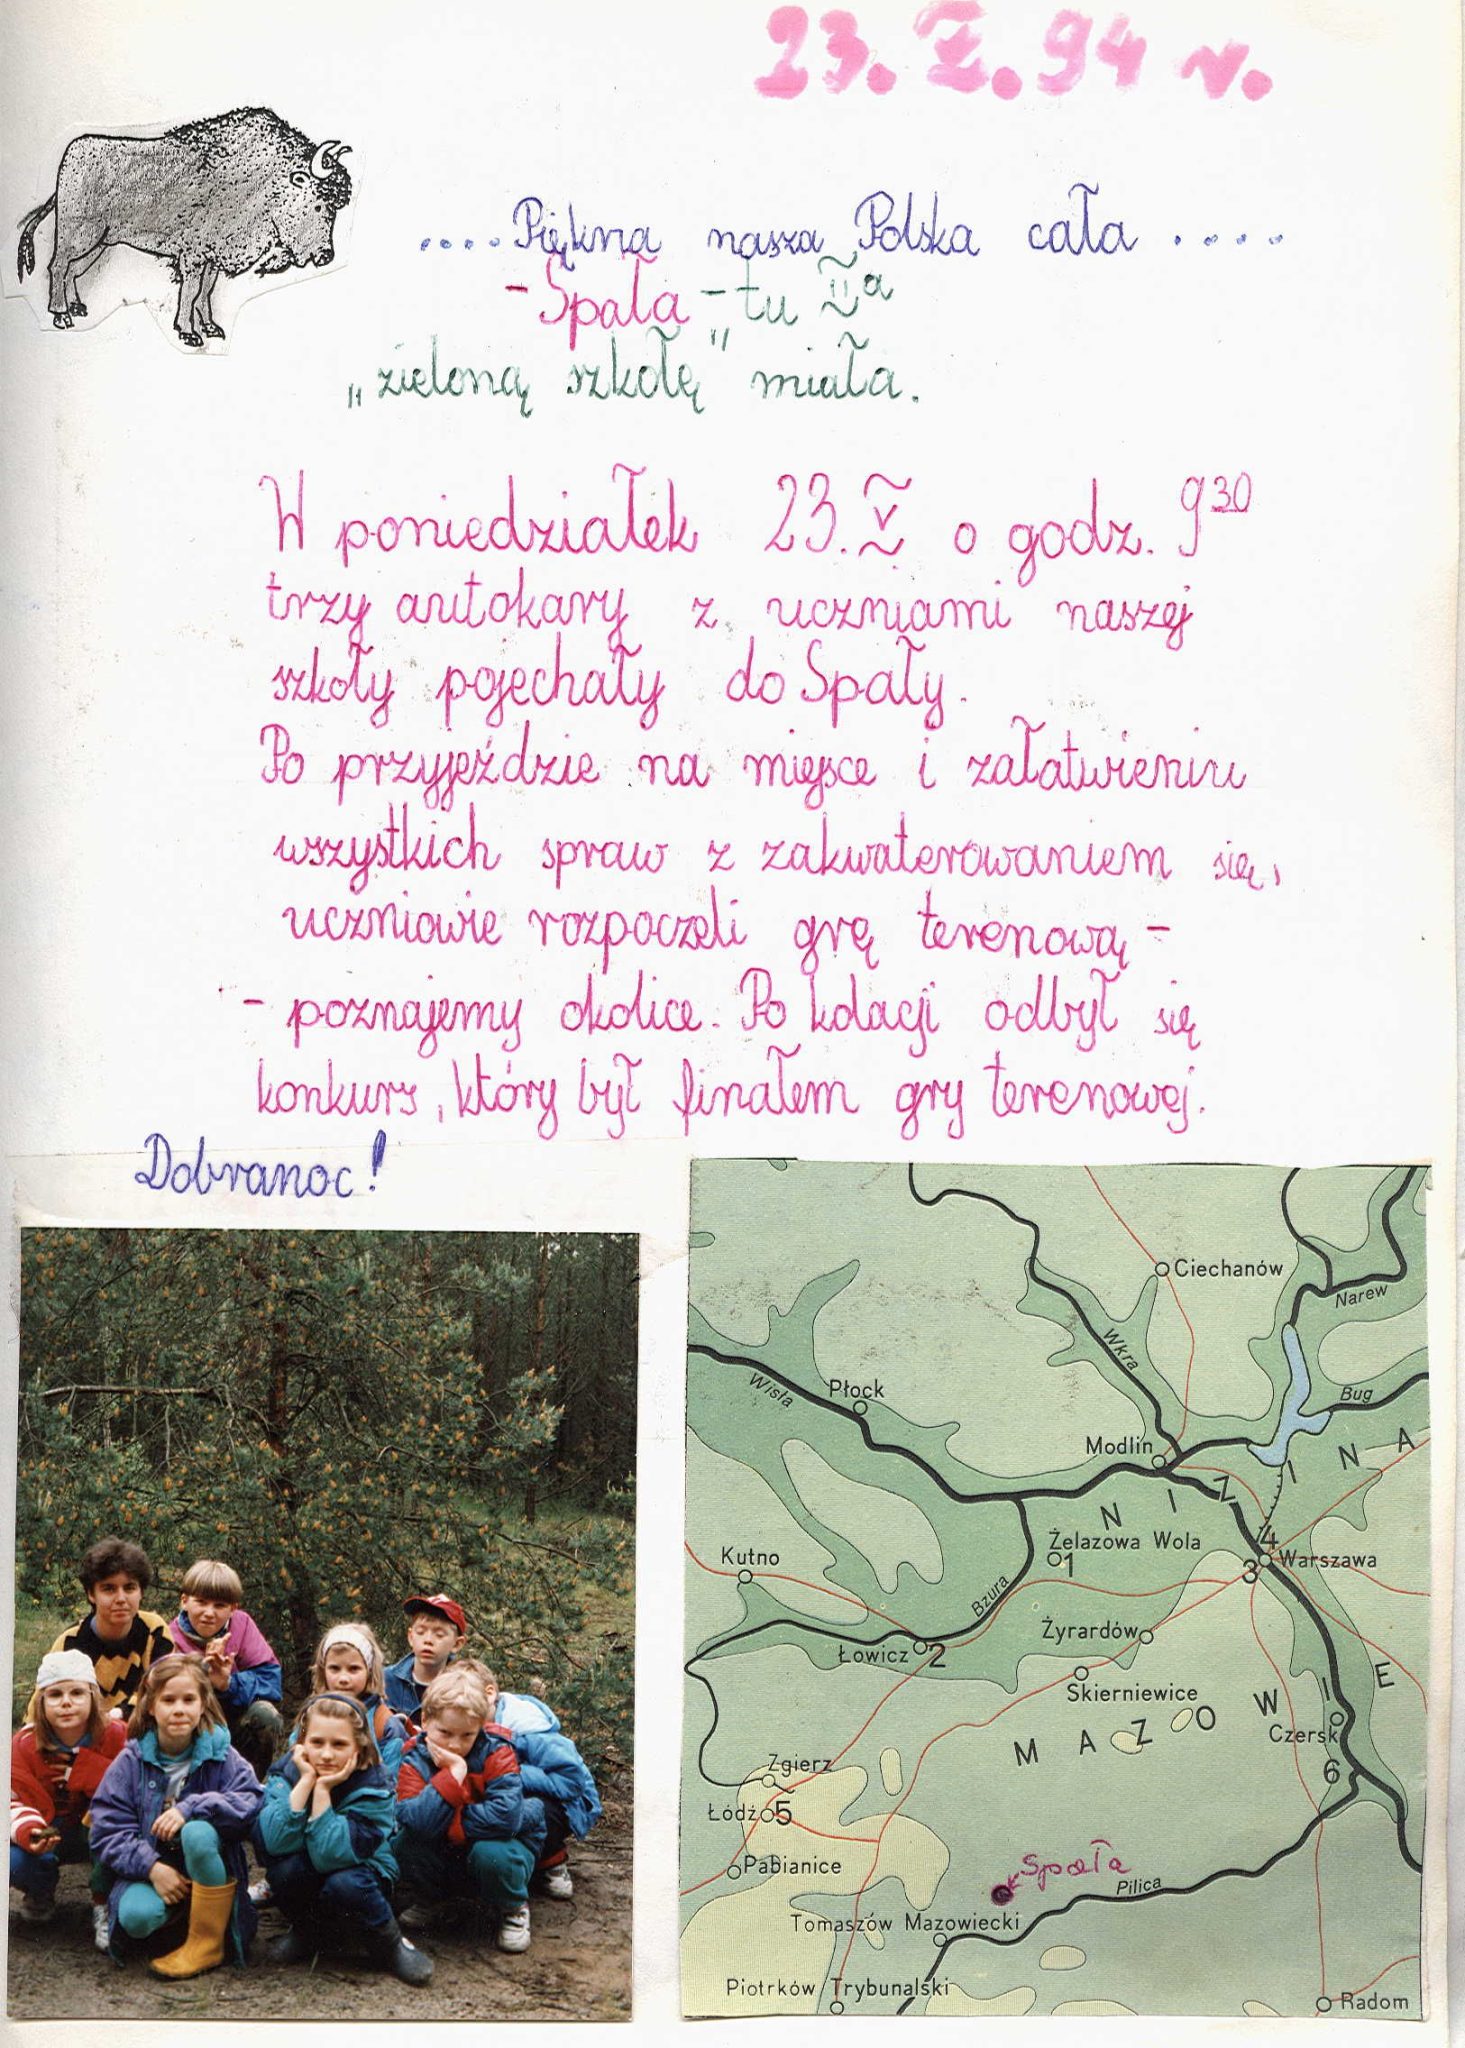 23.V.94 r.
....Piękna nasza Polska cała....
-Spała-tu IIa
„zieloną szkołę" miała.
W poniedziałek 23.V o godz. 9 30
trzy autokary z uczniami naszej
szkoły pojechały do Spały.
Po przyjeździe na miejsce i załatwieniu
wszystkich spraw z zakwaterowaniem się,
uczniowie rozpoczeli grę terenową -
- poznajemy okolice. Po kolacji odbył się
konkurs, który był finałem gry terenowej.
Dobranoc!
Ciechanów
Narew
Wkra
Wisła
Płock
Bug
Modlin
NIZINA
Żelazowa Wola
1
Kutno
4
Warszawa
3
Bzura
Żyrardów
Łowicz 2
Skierniewice
MAZOWIE
Czersk
6
Zgierz
Łódź 5
Pabianice
Spała
Pilica
Tomaszów Mazowiecki
Piotrków Trybunalski
Radom